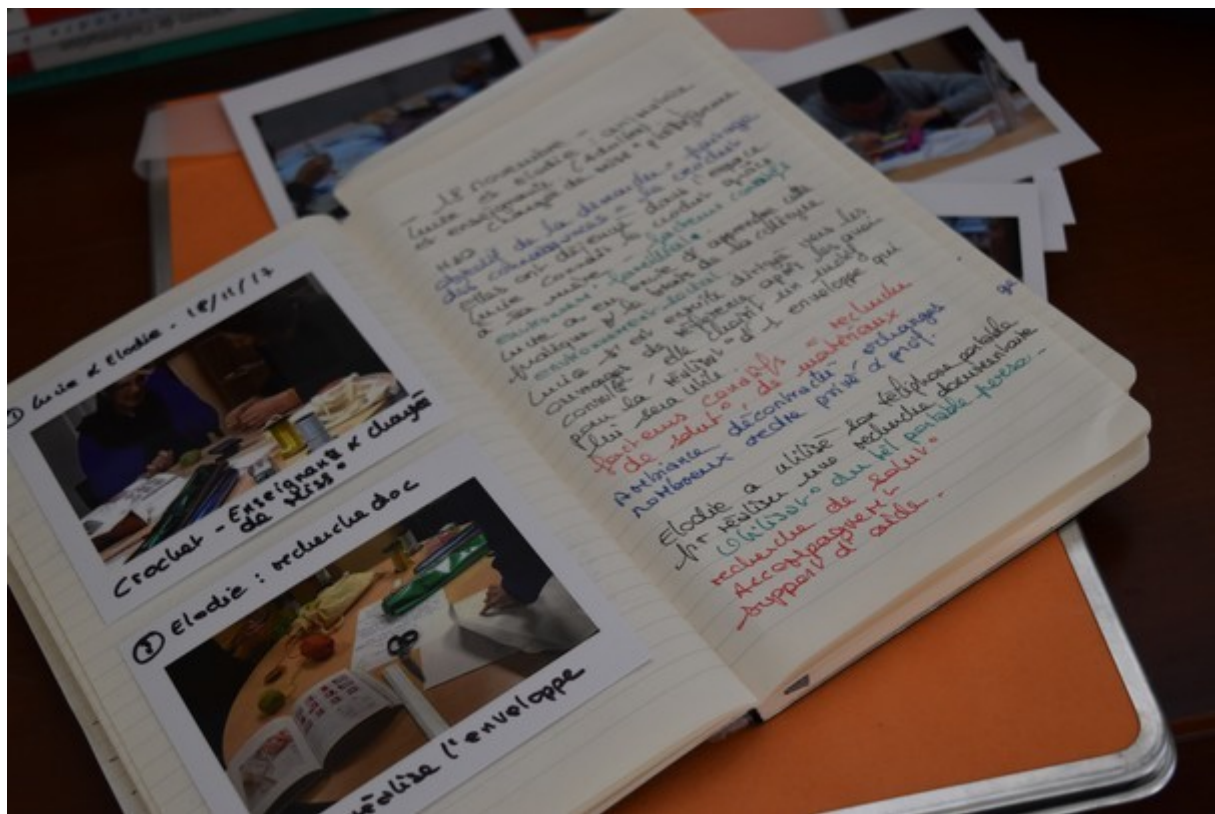 ① Lucie & Elodie - 18/11/17
Crochet - Enseignante & chargée
de miss°
② Elodie : recherche doc
réalise l'enveloppe
- 18 novembre -
Lucie et Elodie
et enseignante (adultes)
chargée de miss°
H20
objectif de la demande : partage
des connaissances - le crochet
elles ont déjeuné dans l'espace
à sa mère - facteurs conatifs
environnt familial
Lucie a eu envie d'apprendre cette
pratique par le biais de sa collègue
environnement social
Lucie s'est ensuite dirigée vers les
ouvrages de référence après les avoir
consulté, elle choisit un motif
pour la réalisat° d'1 enveloppe qui
lui sera utile
facteurs conatifs - recherche
de solut°, de matériaux
Ambiance décontractée - échanges
nombreux entre privé & prof.
Elodie a utilisé son téléphone portable
pr réaliser une recherche documentaire
Utilisat° du tél portable perso -
recherche de solut°
Accompagnemt -
support d'aide.